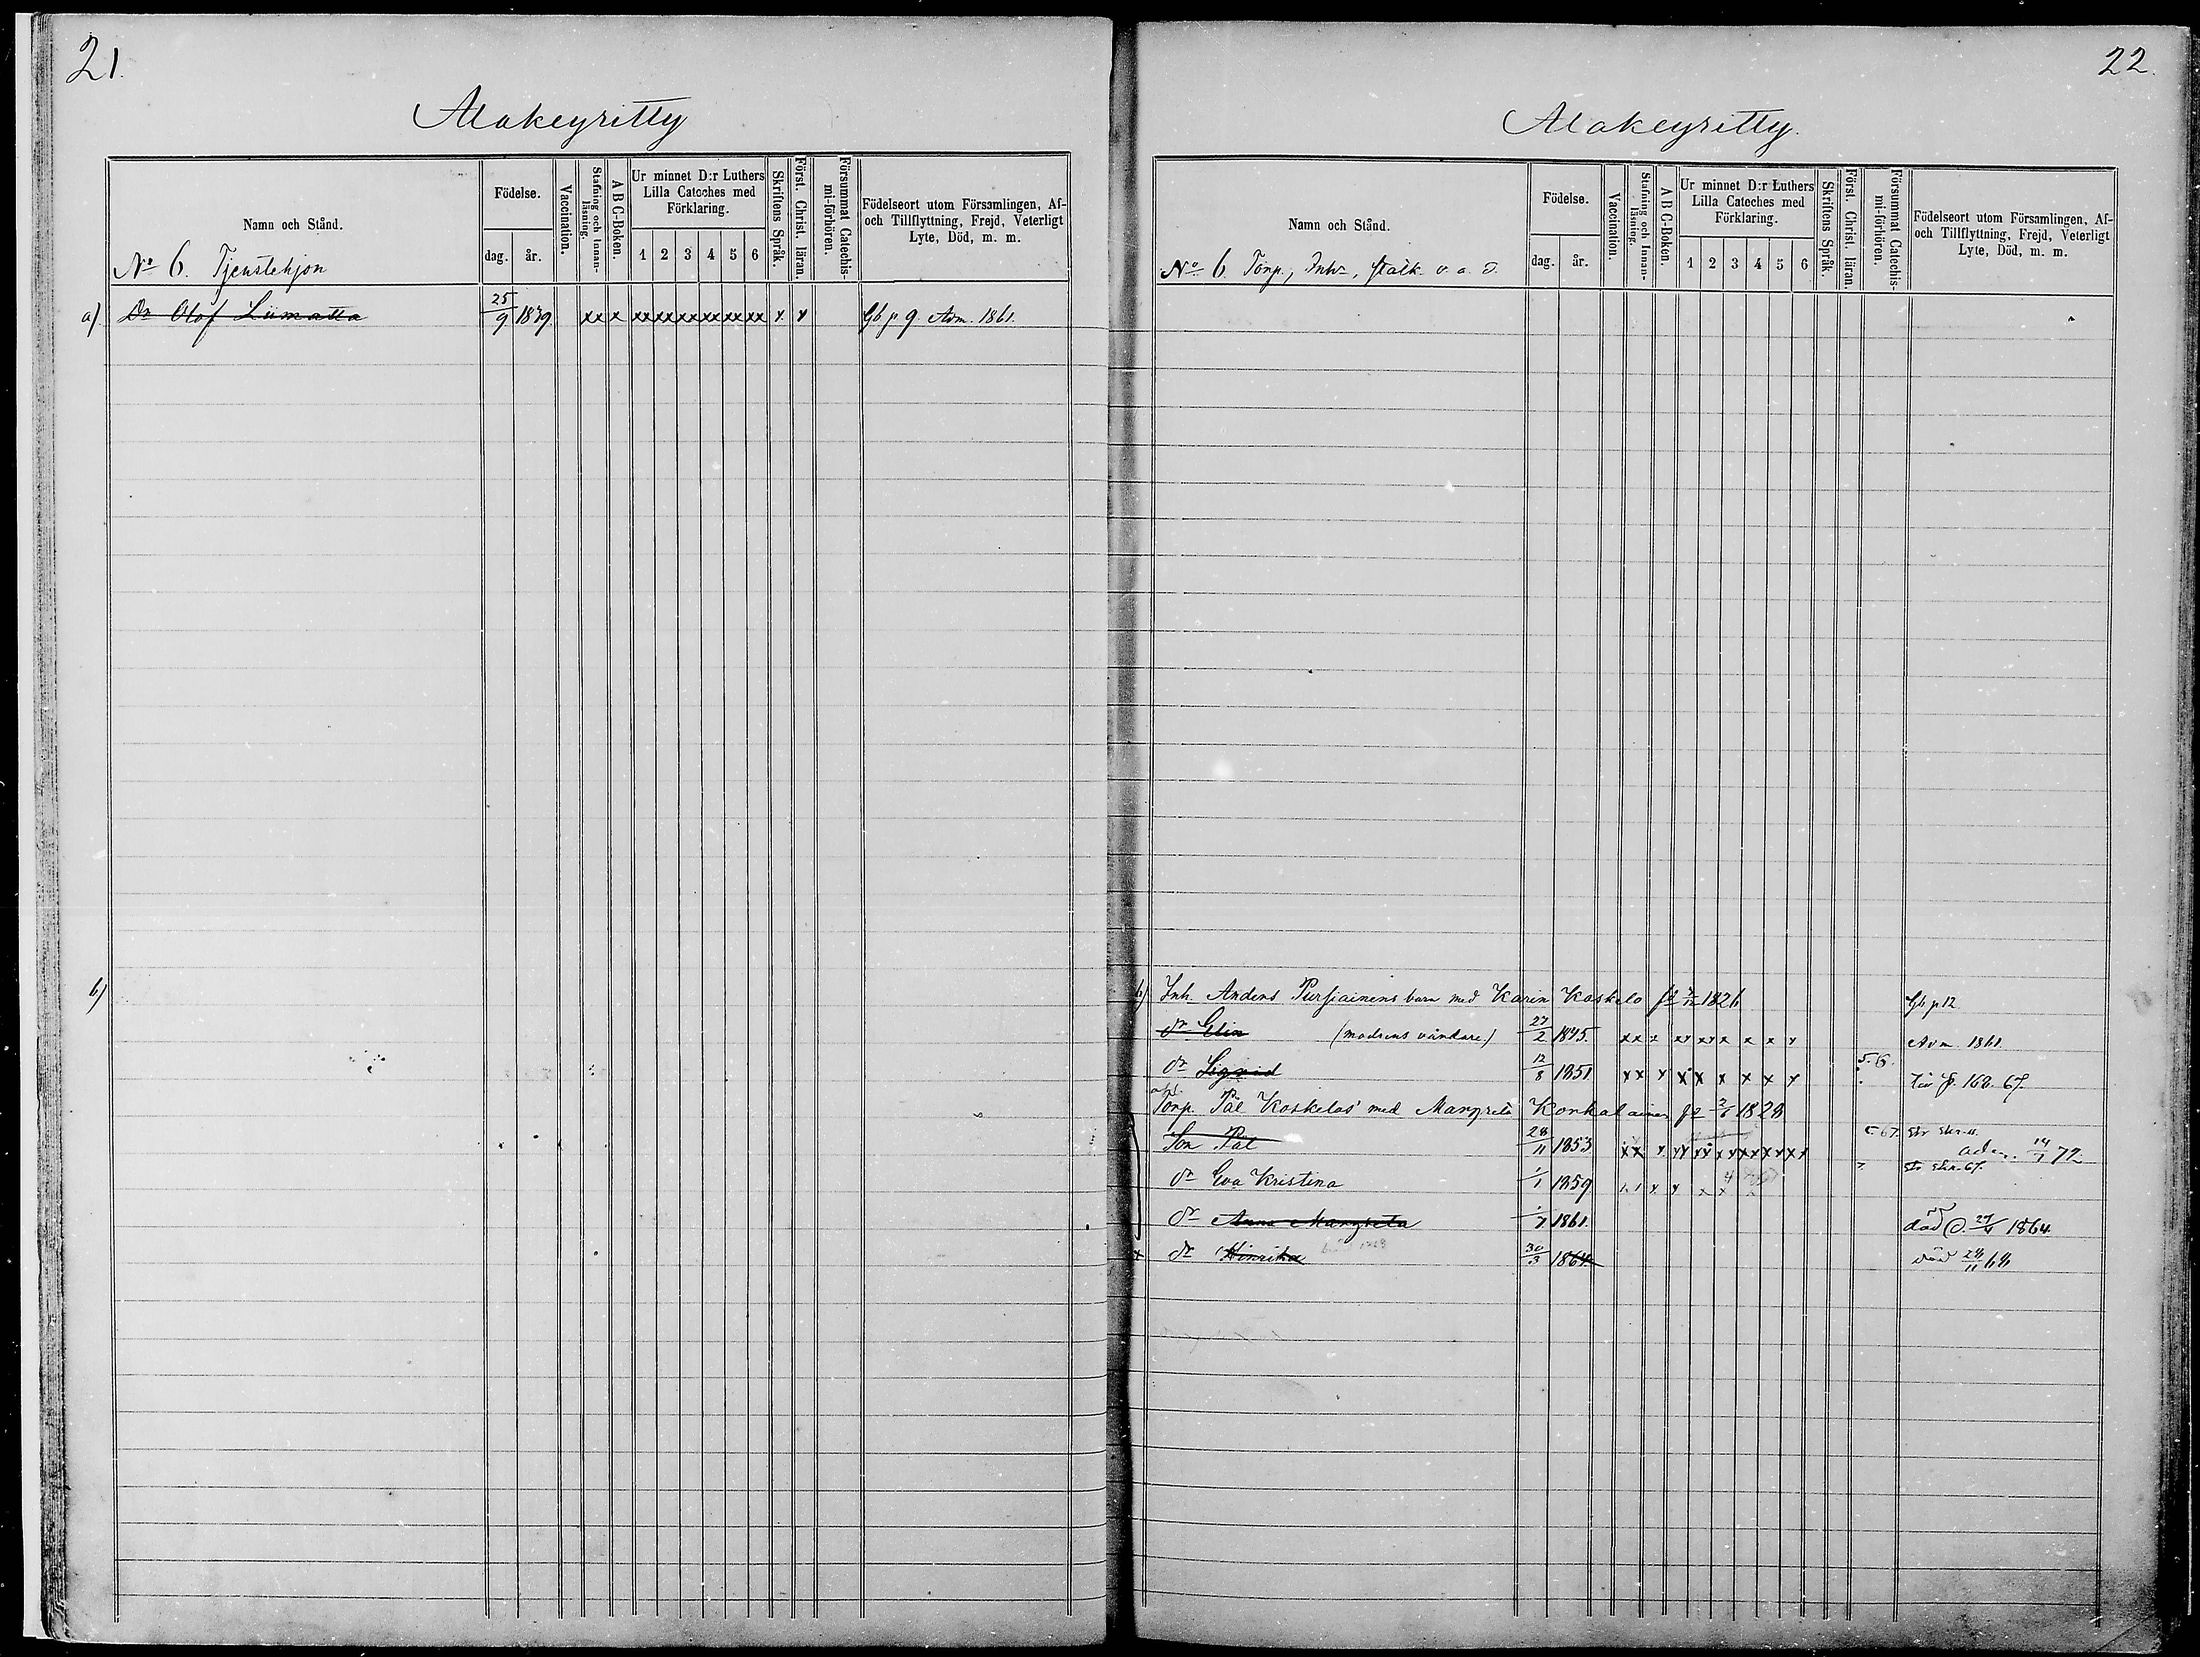 21.
Alakeyritty
Namn och Stånd.
Födelse.
dag.
år.
Vaccination.
Stafning och Innanläsning.
A B C-Boken.
Ur minnet D:r Luthers
Lilla Cateches med
Förklaring.
1 2 3 4 5 6
Skriftens Språk.
Först. Christ. läran.
Försummat Catechismi-förhören.
Födelseort utom Församlingen, Af-
och Tillflyttning, Frejd, Veterligt
Lyte, Död, m. m.
No 6. Tjenstehjon
a) Dr Olof Liimatta 25/9 1839 xx x xx xx xx xx xx xx x x Gb p 9. Adm. 1861.
b)
22.
Alakeyritty.
Namn och Stånd.
Födelse.
dag.
år.
Vaccination.
Stafning och Innanläsning.
A B C-Boken.
Ur minnet D:r Luthers
Lilla Cateches med
Förklaring.
1 2 3 4 5 6
Skriftens Språk.
Först. Christ. läran.
Försummat Catechismi-förhören.
Födelseort utom Församlingen, Af-
och Tillflyttning, Frejd, Veterligt
Lyte, Död, m. m.
No 6. Torp., Inh., Stalk. o. a. d.
b) Inh. Anders Pursiainens barn med Karin Koskelo 1826 Gb p 12
dr Elin (modrens vårdare) 27/2 1845. xx x xx xx x x x x Adm. 1861
dr Sigrid 12/8 1851 xx x x x x x x x 5. 6. p. 168. 67.
Torp. Pål Koskelos med Margreta Korhalainen 1828
Son Pål 28/11 1853 67. adm. 14/7 72
dr Eva Kristina 1/1 1859
dr Anna Margreta 1/7 1861. död 1864.
x dr Hinrika 30/3 1864. död 28/11 68